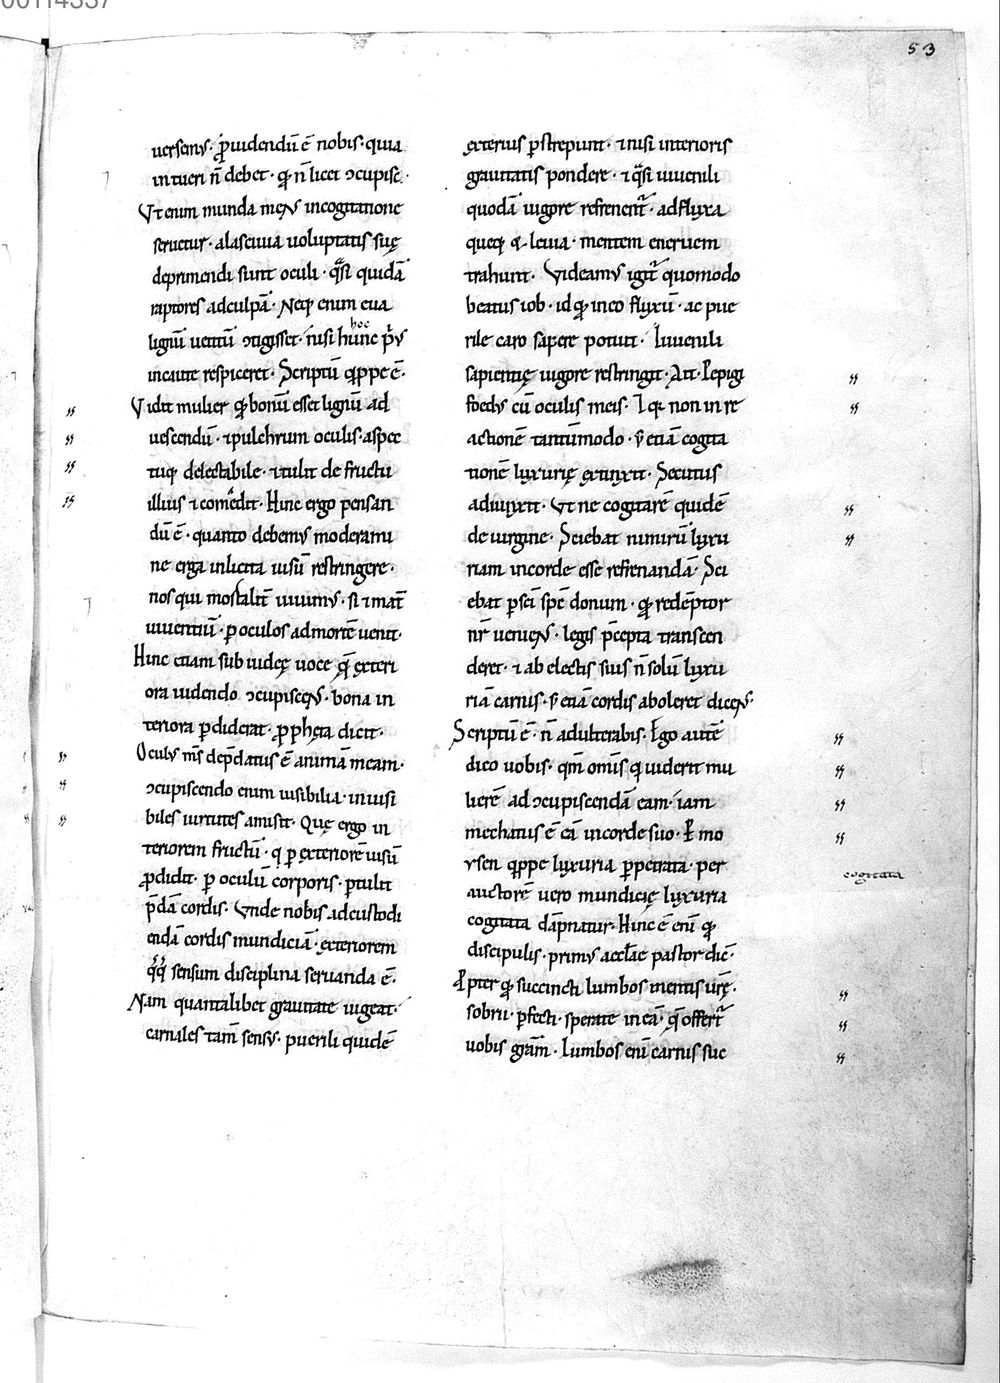 00114337
53
uersem᷒. ꝓuidendū ē nobis. quia
intueri n̄ debet. qđ n̄ licet ꝯcupisc̄.
Vt enim munda mens incogitatione
seruetur. a lasciuia uoluptatis suę
deprimendi sunt oculi. q̄si quidā
raptores ad culpā. Neqꝫ enim eua
lignū uetitū ꝯtigisset. nisi hunc p̄us
hoc
incaute respiceret. Scriptū q̄ppe ē.
Vidit mulier qđ bonū esset lignū ad
uescendū. ⁊ pulchrum oculis. aspec
tuqꝫ delectabile. ⁊ tulit de fructu
illius ⁊ comedit. Hinc ergo pensan
dū ē. quanto debem᷒ moderami
ne erga inlicita uisū restringere.
nos qui mortalit̄ uiuim᷒. si ⁊ mat̄
uiuentiū. ꝑ oculos ad mortē uenit.
Hinc etiam sub iudeę uoce quę̄ exteri
ora uidendo ꝯcupiscens. bona in
teriora ꝑdiderat. ꝓpheta dicit.
Ocul᷒ ms̄ dep̄datus ē animā meam.
ꝯcupiscendo enim uisibilia. inuisi
biles uirtutes amisit. Quę ergo in
teriorem fructū. q̄ ꝑ exteriorē uisū
ꝑdidit. ꝑ oculū corporis. ꝑtulit
p̄dā cordis. Vnde nobis ad custodi
endā cordis mundiciā. exteriorem
q̄q̄ sensum disciplina seruanda ē.
Nam quantalibet grauitate uigeat.
carnales tam̄ sens᷒. puerili quidē
exterius ꝑstrepunt. ⁊ nisi interioris
grauitatis pondere. ⁊ q̄si iuuenili
quodā uigore refrenent᷑. ad fluxa
queqꝫ & leuia. mentem eneruem
trahunt. Videam᷒ igit᷑ quomodo
beatus iob. id qđ in eo fluxū. ac pue
rile caro sapere potuit. Iuuenili
sapientię uigore restringit. Ait. Pepigi
foed᷒ cū oculis meis. Iqꝫ non in re
actionē tantūmodo. s̄ etiā cogita
tionē luxurię extinxit. Secutus
adiunxit. Vt ne cogitarē quidē
de uirgine. Sciebat nimirū luxu
riam in corde esse refrenandā. Sci
ebat ꝑ sc̄i sp̄c donum. qđ redēptor
nr̄ ueniens. legis p̄cepta transcen
deret. ⁊ ab electis suis n̄ solū luxu
riā carnis. s̄ etiā cordis aboleret dicens.
Scriptū ē. n̄ adulterabis. Ego autē
dico uobis. qm̄ omīs q̄ uiderit mu
lierē ad ꝯcupiscendā eam. iam
mechatus ē eā in corde suo. P mo
ysen q̄ppe luxuria ꝑpetrata. per
auctorē uero mundicię luxuria
cogitata dāpnatur. Hinc ē enī qđ
cogitata
discipulis. prim᷒ aeccłae pastor dic̄.
Ꝓpter qđ succincti lumbos mentis urę̄.
sobrii. ꝑfecti. sperate in eā. quę̄ offert᷑
uobis grām. Lumbos enī carnis suc